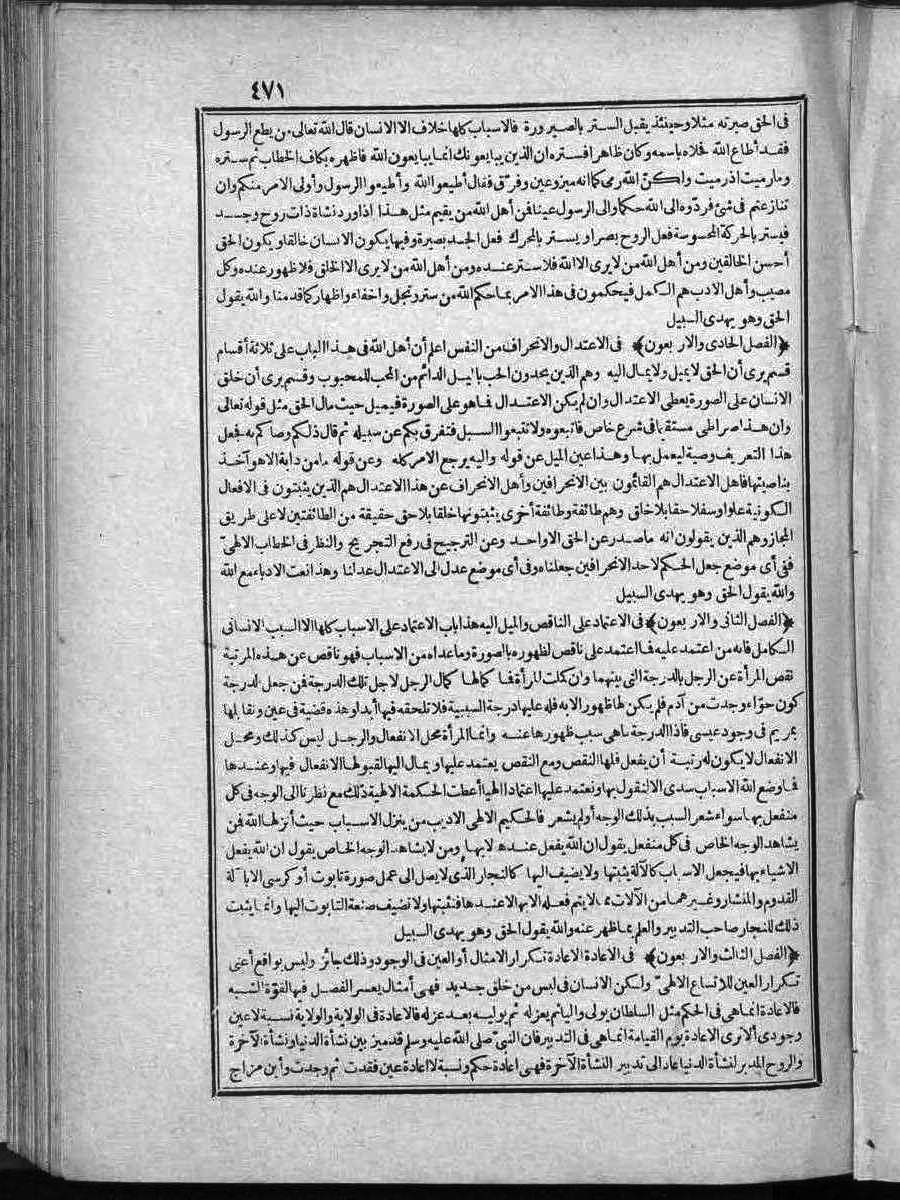 ٤٧١
فى الحق صيرته مثلا وحينئذ يقبل الستر بالصيرورة فالاسباب كلها خلاف الا الانسان قال الله تعالى من يطع الرسول
فقد أطاع الله فجلاه باسمه وكان ظاهرا فستره ان الذين يبايعونك انما يبايعون الله فاظهره بكاف الخطاب ثم ستره
وما رميت اذ رميت ولكنّ الله رمى كما انه ميز وعين وفرّق فقال أطيعوا الله وأطيعوا الرسول وأولى الامر منكم وان
تنازعتم فى شئ فردّوه الى الله حكما والى الرسول عينا فمن أهل الله من يقيم مثل هذا اذا ورد نشأة ذات روح وجسد
فيستر بالحركة المحسوسة فعل الروح بصرا ويستر بالمحرك فعل الجسد بصيرة وفيها يكون الانسان خالقا ويكون الحق
أحسن الخالقين ومن أهل الله من لا يرى الا الله فلا ستر عنده ومن أهل الله من لا يرى الا الخلق فلا ظهور عنده وكل
مصيب وأهل الادب هم الكمل فيحكمون فى هذا الامر بما حكم الله من ستر وتجل واخفاء واظهار كما قدمنا والله يقول
الحق وهو يهدى السبيل
﴿الفصل الحادى والاربعون﴾ فى الاعتدال والانحراف من النفس اعلم أن أهل الله فى هذا الباب على ثلاثة أقسام
قسم يرى أن الحق لا يميل ولا يمال اليه وهم الذين يحدون الحب بالميل الدائم من المحب للمحبوب وقسم يرى أن خلق
الانسان على الصورة يعطى الاعتدال وان لم يكن الاعتدال فما هو على الصورة فيميل حيث مال الحق مثل قوله تعالى
وان هذا صراطى مستقيما فى شرع خاص فاتبعوه ولا تتبعوا السبل فتفرق بكم عن سبيله ثم قال ذلكم وصاكم به فجعل
هذا التعريف وصية ليعمل بها وهذا عين الميل عن قوله واليه يرجع الامر كله وعن قوله ما من دابة الا هو آخذ
بناصيتها فاهل الاعتدال هم القائمون بين الانحرافين وأهل الانحراف عن هذا الاعتدال هم الذين يثبتون فى الافعال
الكونية علوا وسفلا حقا بلا خلق وهم طائفة وطائفة أخرى يثبتونها خلقا بلا حق حقيقة من الطائفتين لا على طريق
المجاز وهم الذين يقولون انه ما صدر عن الحق الا واحد وعن الترجيح فى رفع التجريح والنظر فى الخطاب الالهىّ
ففى أى موضع جعل الحكم لاحد الانحرافين جعلناه وفى أى موضع عدل الى الاعتدال عدلنا وهذا نعت الادباء مع الله
والله يقول الحق وهو يهدى السبيل
﴿الفصل الثانى والاربعون﴾ فى الاعتماد على الناقص والميل اليه هذا باب الاعتماد على الاسباب كلها الا السبب الانسانى
الكامل فانه من اعتمد عليه فما اعتمد على ناقص لظهوره بالصورة وما عداه من الاسباب فهو ناقص عن هذه المرتبة
نقص المرأة عن الرجل بالدرجة التى بينهما وان كملت المرأة فما كمالها كمال الرجل لاجل تلك الدرجة فمن جعل الدرجة
كون حوّاء وجدت من آدم فلم يكن لها ظهور الا به فله عليها درجة السببية فلا تلحقه فيها أبدا وهذه قضية فى عين ونقابلها
بمريم فى وجود عيسى فاذا الدرجة ما هى سبب ظهورها عنه وانما المرأة محل الانفعال والرجل ليس كذلك ومحل
الانفعال لا يكون له رتبة أن يفعل فلها النقص ومع النقص يعتمد عليها ويمال اليها لقبولها الانفعال فيها وعندها
فما وضع الله الاسباب سدى الا لنقول بها ونعتمد عليها اعتمادا الهيا أعطت الحكمة الالهية ذلك مع نظرنا الى الوجه فى كل
منفعل بها سواء شعر السبب بذلك الوجه أو لم يشعر فالحكيم الالهى الاديب من ينزل الاسباب حيث أنزلها الله فمن
يشاهد الوجه الخاص فى كل منفعل يقول ان الله يفعل عندها لا بها ومن لا يشاهد الوجه الخاص يقول ان الله يفعل
الاشياء بها فيجعل الاسباب كالآلة يثبتها ولا يضيف اليها كالنجار الذى لا يصل الى عمل صورة تابوت أو كرسى الا بآلة
القدوم والمنشار وغيرهما من الآلات مما لا يتم فعله الا بها لا عندها فنثبتها ولا نضيف صنعة التابوت اليها وانما يثبت
ذلك للنجار صاحب التدبير والعلم بما ظهر عنه والله يقول الحق وهو يهدى السبيل
﴿الفصل الثالث والاربعون﴾ فى الاعادة الاعادة تكرار الامثال أو العين فى الوجود وذلك جائز وليس بواقع أعنى
تكرار العين للاتساع الالهىّ ولكن الانسان فى لبس من خلق جديد فهى أمثال يعسر الفصل فيها لقوّة الشبه
فالاعادة انما هى فى الحكم مثل السلطان يولى واليا ثم يعزله ثم يوليه بعد عزله فالاعادة فى الولاية والولاية نسبة لا عين
وجودى ألا ترى الاعادة يوم القيامة انما هى فى التدبير فان النبىّ صلى الله عليه وسلم قد ميز بين نشأة الدنيا ونشأة الآخرة
والروح المدبر لنشأة الدنيا عاد الى تدبير النشأة الآخرة فهى اعادة حكم ونسبة لا اعادة عين فقدت ثم وجدت وأين مزاج